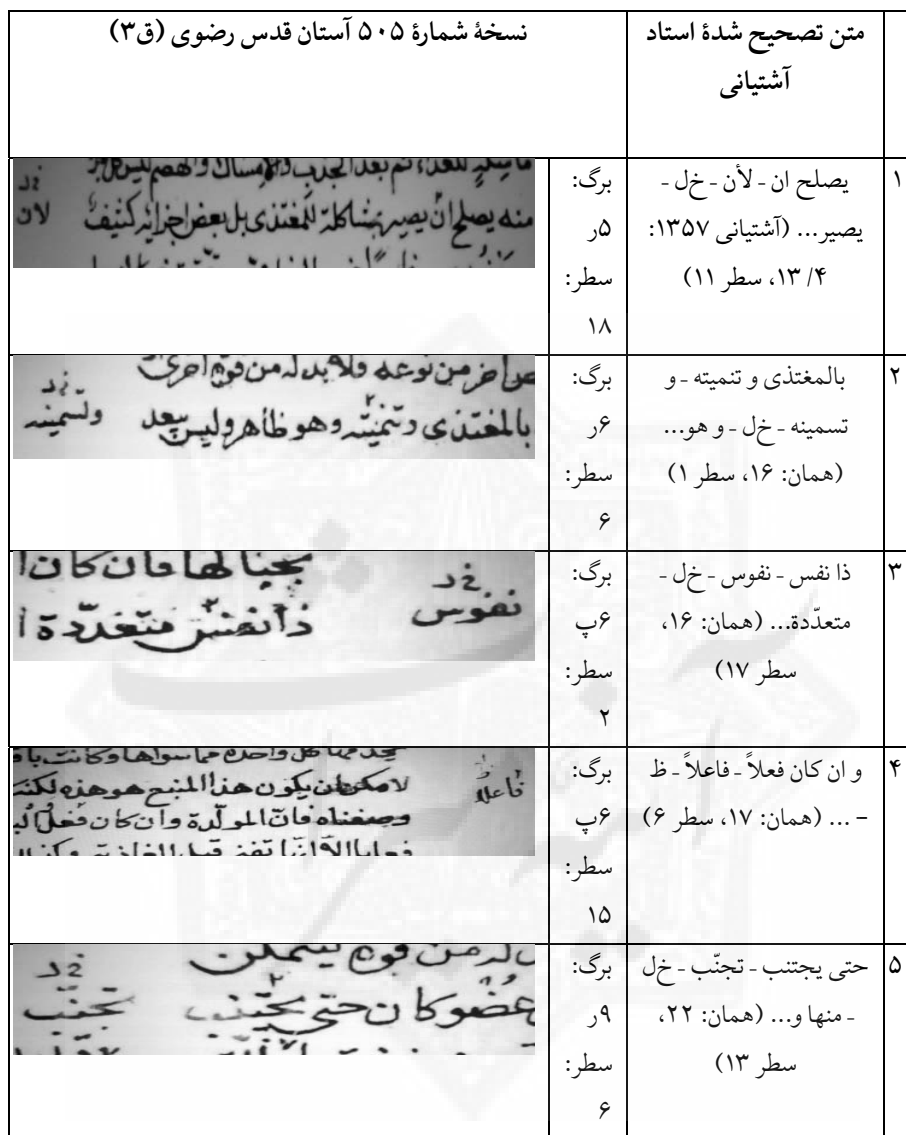 متن تصحیح شدهٔ استاد
آشتیانی
نسخهٔ شمارهٔ ۵۰۵ آستان قدس رضوی (ق۳)
۱
یصلح ان - لأن - خ‌ل -
یصیر... (آشتیانی ۱۳۵۷:
۴/ ۱۳، سطر ۱۱)
برگ:
۵ر
سطر:
۱۸
منه یصلح ان یصیر بمشاکلة للمغتذی بل بعض اجزائه کثیف
لان
۲
بالمغتذی و تنمیته - و
تسمینه - خ‌ل - و هو...
(همان: ۱۶، سطر ۱)
برگ:
۶ر
سطر:
۶
من نوعه فلا بد له من قوة اخری
بالمغتذی و تنمیته و هو ظاهر و لیس
و تسمینه
۳
ذا نفس - نفوس - خ‌ل -
متعدّدة... (همان: ۱۶،
سطر ۱۷)
برگ:
۶پ
سطر:
۲
لها فان کان
ذا نفس متعدّدة
نفوس
۴
و ان کان فعلاً - فاعلاً - ظ
- ... (همان: ۱۷، سطر ۶)
برگ:
۶پ
سطر:
۱۵
یکون هذا المنبع هو هذه
فان المولّدة و ان کان فعلاً
فاعلا
۵
حتی یجتنب - تجنّب - خ‌ل
- منها و... (همان: ۲۲،
سطر ۱۳)
برگ:
۹ر
سطر:
۶
له من قوة
عضو کان حتی یجتنب
تجنّب